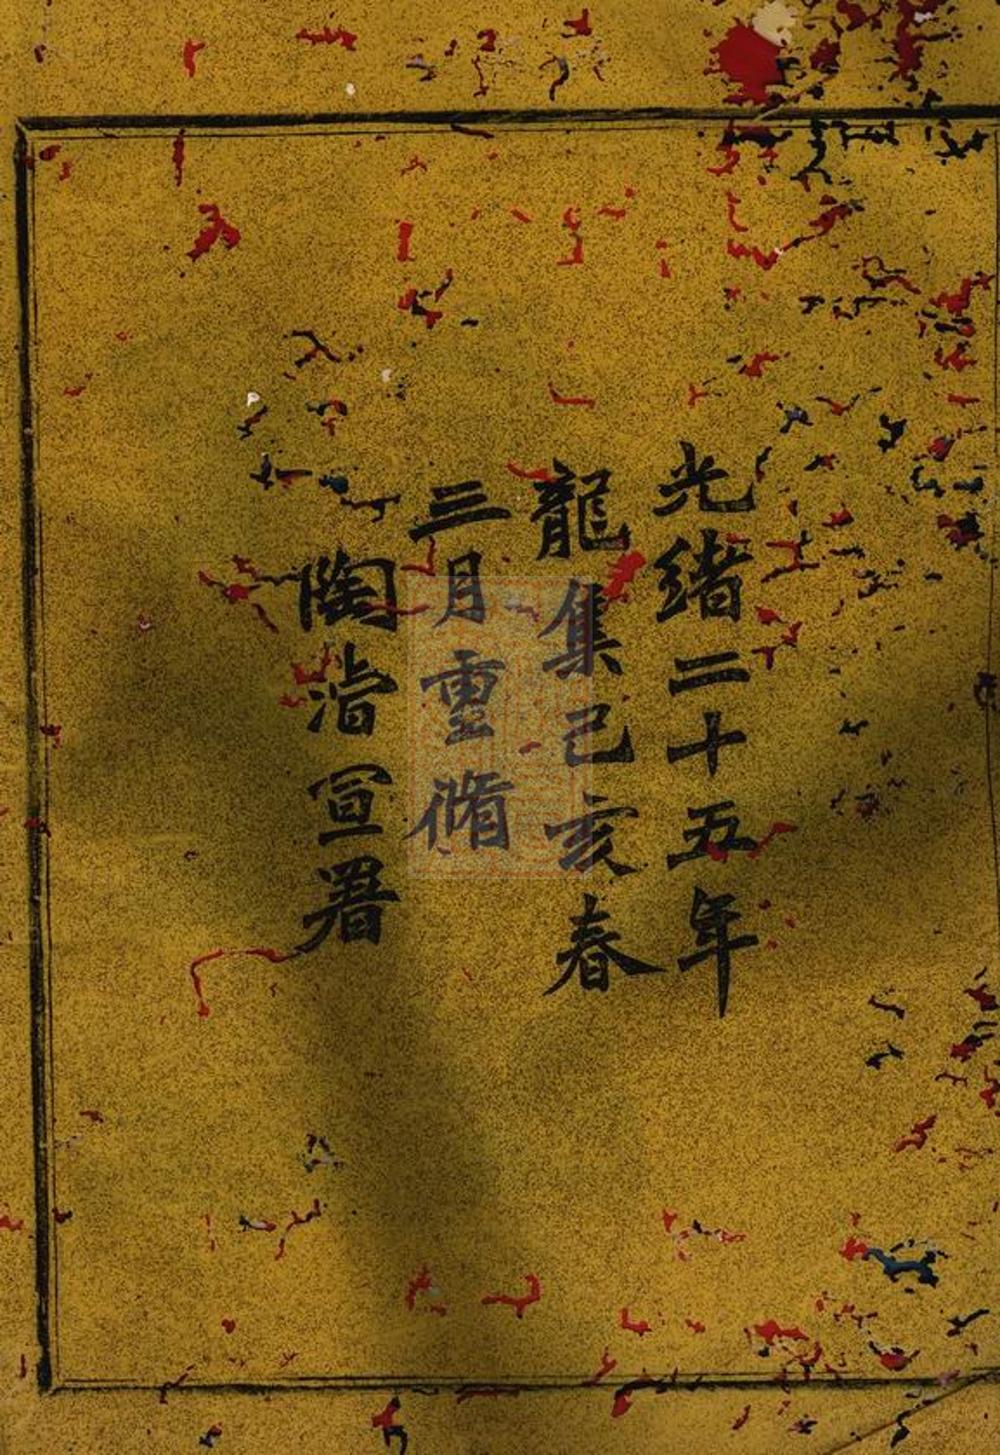 光緒二十五年
龍集己亥春
三月重脩
陶濬宣署